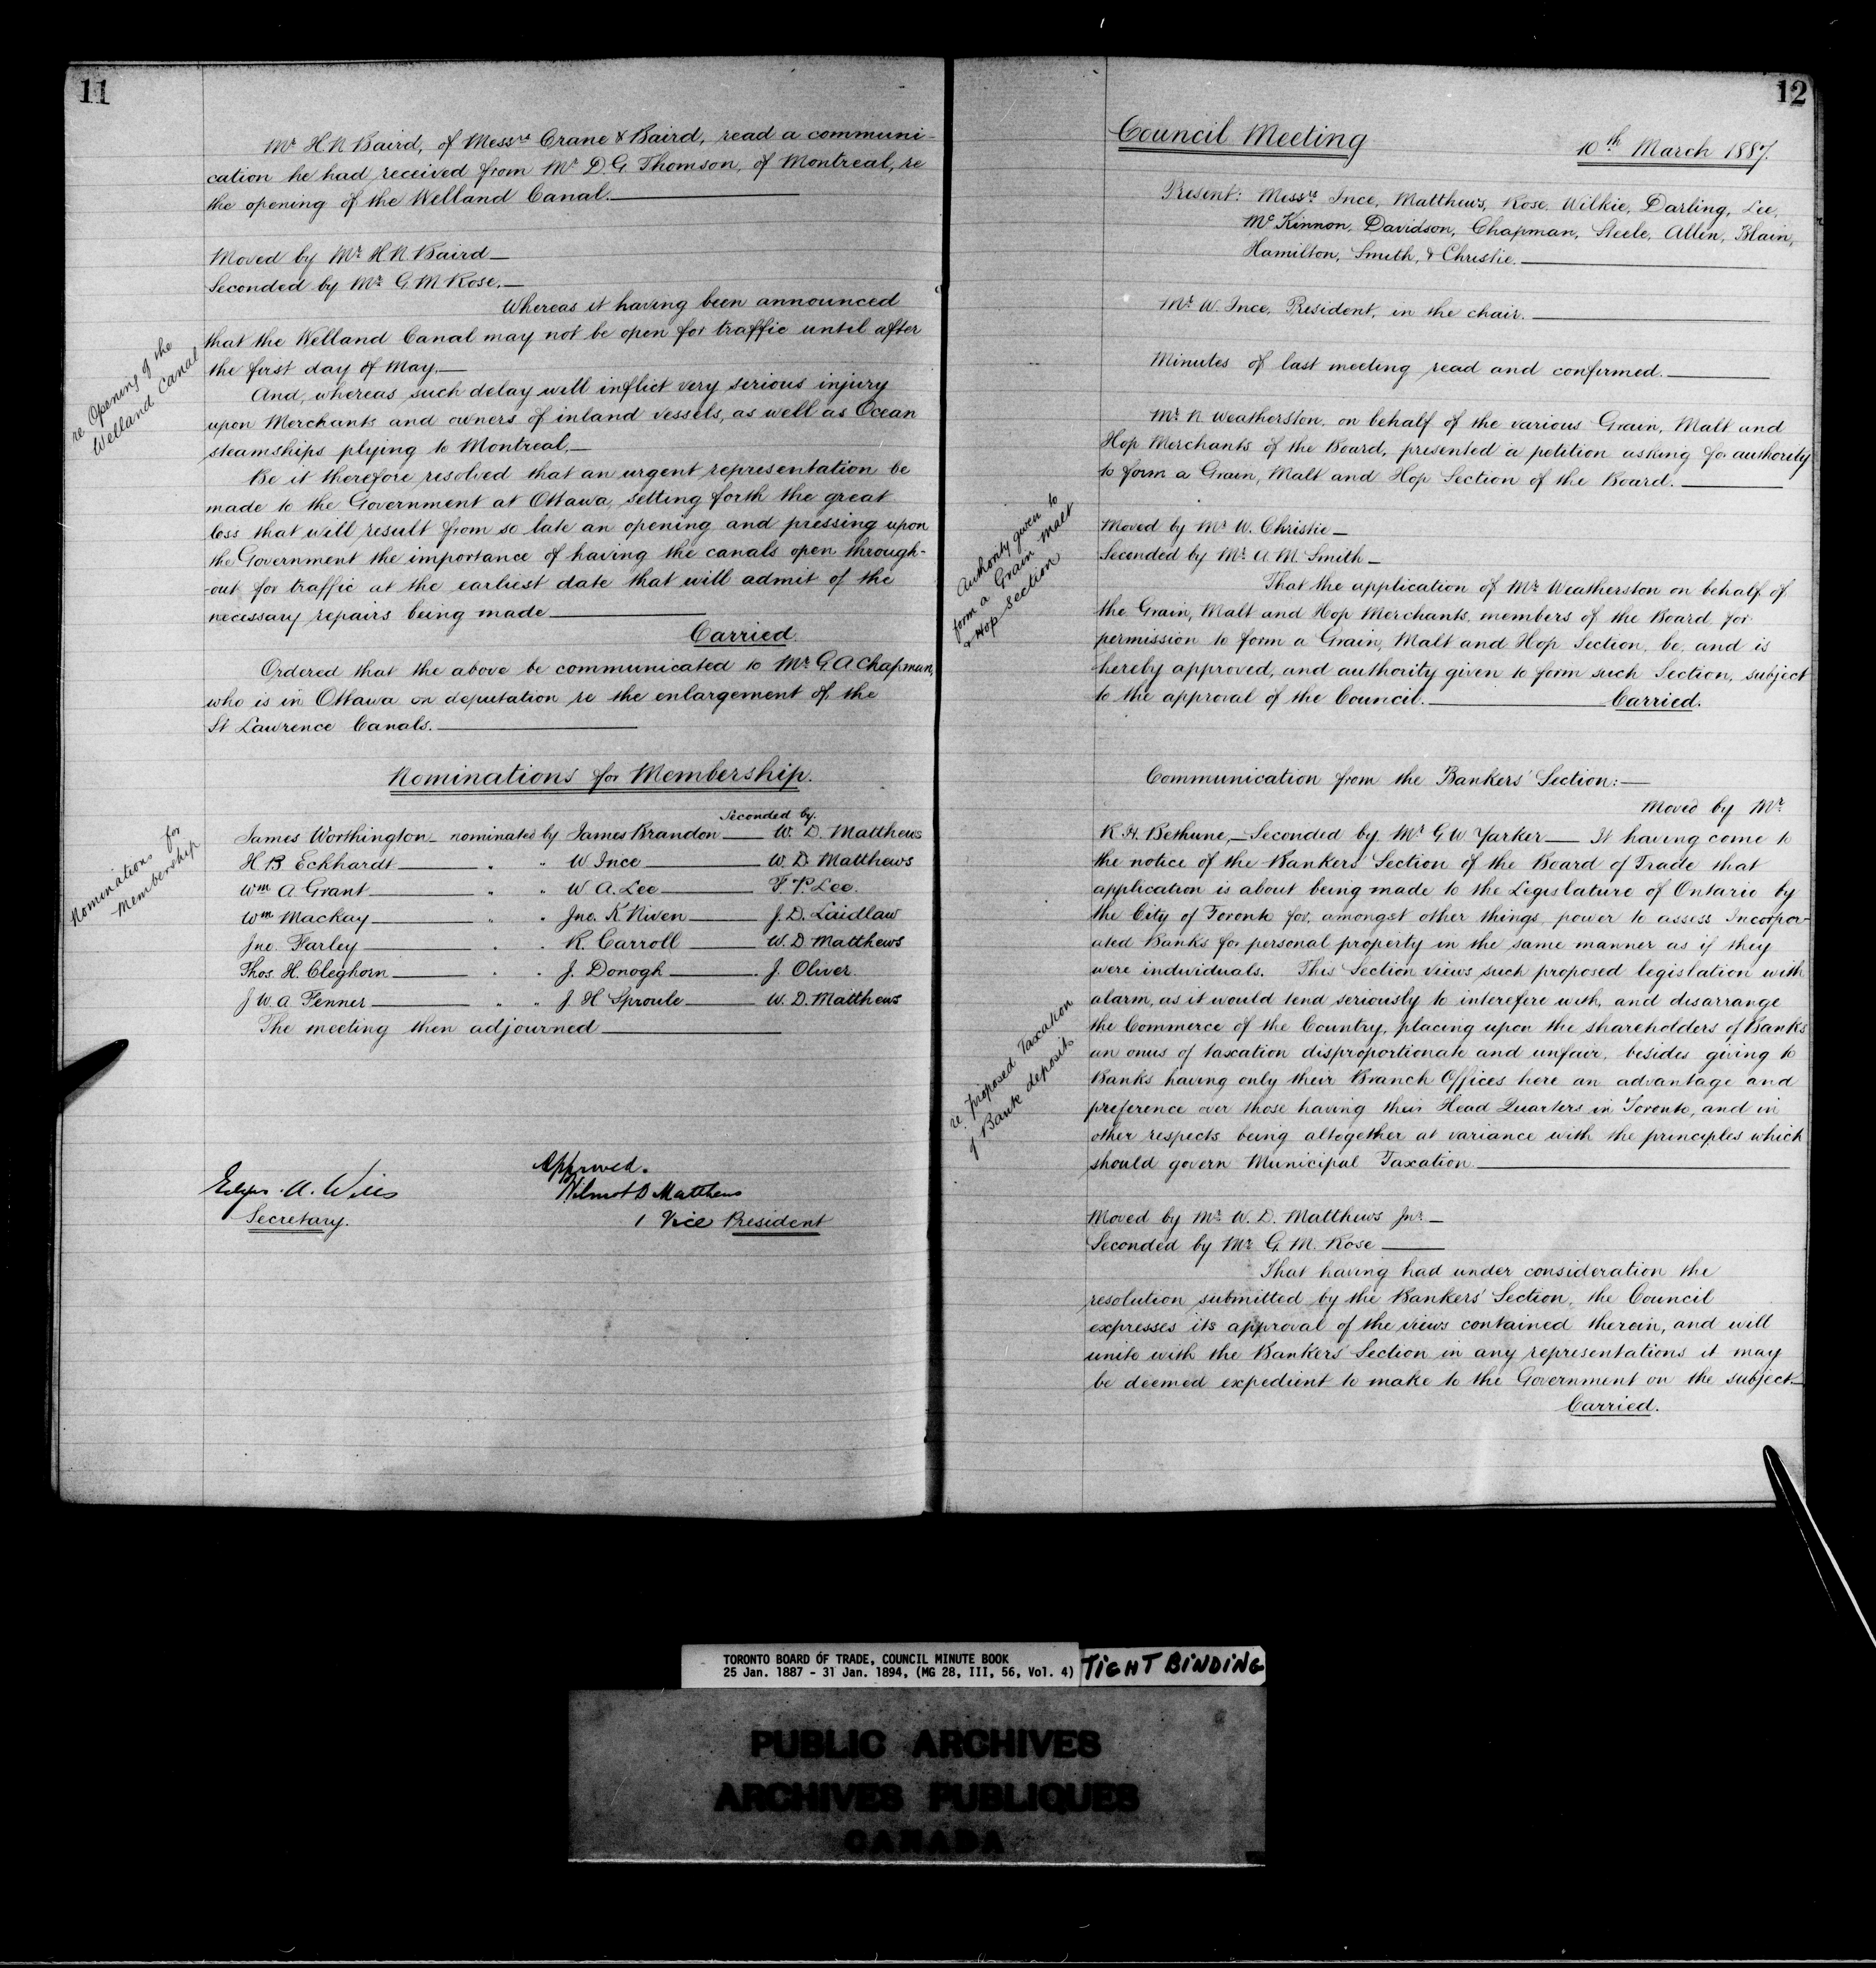 11
Mr H. N Baird, of Messrs Crane & Baird, read a communi-
cation he had received from Mr D. G. Thomson, of Montreal, re
the opening of the Welland Canal.
Moved by Mr H N Baird
Seconded by Mr G M Rose.
Whereas it having been announced
that the Welland Canal may not be open for traffic until after
the first day of May.
re Opening of the
Welland Canal
And, whereas such delay will inflict very serious injury
upon Merchants and owners of inland vessels, as well as Ocean
steamships plying to Montreal,
Be it therefore resolved that an urgent representation be
made to the Government at Ottawa, setting forth the great
loss that will result from so late an opening and pressing upon
the Government the importance of having the canals open through-
-out for traffic at the earliest date that will admit of the
necessary repairs being made
Carried.
Ordered that the above be communicated to Mr G. A Chapman,
who is in Ottawa on deputation re the enlargement of the
St Lawrence Canals.
Nominations for Membership.
Seconded by.
Nominations for
Membership
James Worthington nominated by James Brandon W. D. Matthews
H. B. Eckhardt " " W Ince W. D. Matthews
Wm A Grant " " W A. Lee F. P. Lee.
Wm Mackay " " Jno. K Niven J. D. Laidlaw
Jno. Farley " " R. Carroll W. D Matthews
Thos. H. Cleghorn " " J. Donogh J. Oliver.
J W. A Fenner " " J. H Sproule W. D. Matthews
The meeting then adjourned
Edgar. A. Wills
Secretary.
Approved.
Wilmot D Matthews
1 Vice President
12
Council Meeting
10th March 1887.
Present: Messrs Ince, Matthews, Rose, Wilkie, Darling, Lee,
McKinnon, Davidson, Chapman, Steele, Allen, Blain,
Hamilton, Smith, & Christie.
Mr W. Ince, President, in the chair.
Minutes of last meeting read and confirmed.
Mr N Weatherston, on behalf of the various Grain, Malt and
Hop Merchants of the Board, presented a petition asking for authority
to form a Grain, Malt and Hop Section of the Board.
Authority given to
form a Grain Malt
& Hop Section
Moved by Mr W. Christie
Seconded by Mr A. M. Smith
That the application of Mr Weatherston on behalf of
the Grain, Malt and Hop Merchants, members of the Board for
permission to form a Grain, Malt and Hop Section, be, and is
hereby approved, and authority given to form such Section, subject
to the approval of the Council. Carried.
Communication from the Bankers' Section:
Moved by Mr
R. H. Bethune, Seconded by Mr G W Yarker It having come to
the notice of the Bankers' Section of the Board of Trade that
application is about being made to the Legislature of Ontario by
the City of Toronto for, amongst other things, power to assess Incorpor-
ated Banks for personal property in the same manner as if they
were individuals. This Section views such proposed legislation with
alarm, as it would tend seriously to interefere with, and disarrange
the Commerce of the Country, placing upon the shareholders of Banks
an onus of taxation disproportionate and unfair, besides giving to
Banks having only their Branch Offices here an advantage and
preference over those having their Head Quarters in Toronto, and in
other respects being altogether at variance with the principles which
should govern Municipal Taxation
re. proposed Taxation
of Bank deposits
Moved by Mr W. D. Matthews Jnr
Seconded by Mr G. M. Rose
That having had under consideration the
resolution submitted by the Bankers' Section, the Council
expresses its approval of the views contained therein, and will
unite with the Bankers' Section in any representations it may
be deemed expedient to make to the Government on the subject
Carried.
TORONTO BOARD OF TRADE, COUNCIL MINUTE BOOK
25 Jan. 1887 - 31 Jan. 1894, (MG 28, III, 56, Vol. 4)
TIGHT BINDING
PUBLIC ARCHIVES
ARCHIVES PUBLIQUES
CANADA